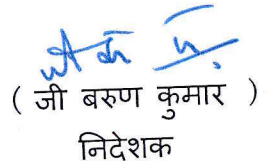 ( जी बरुण कुमार )
निदेशक